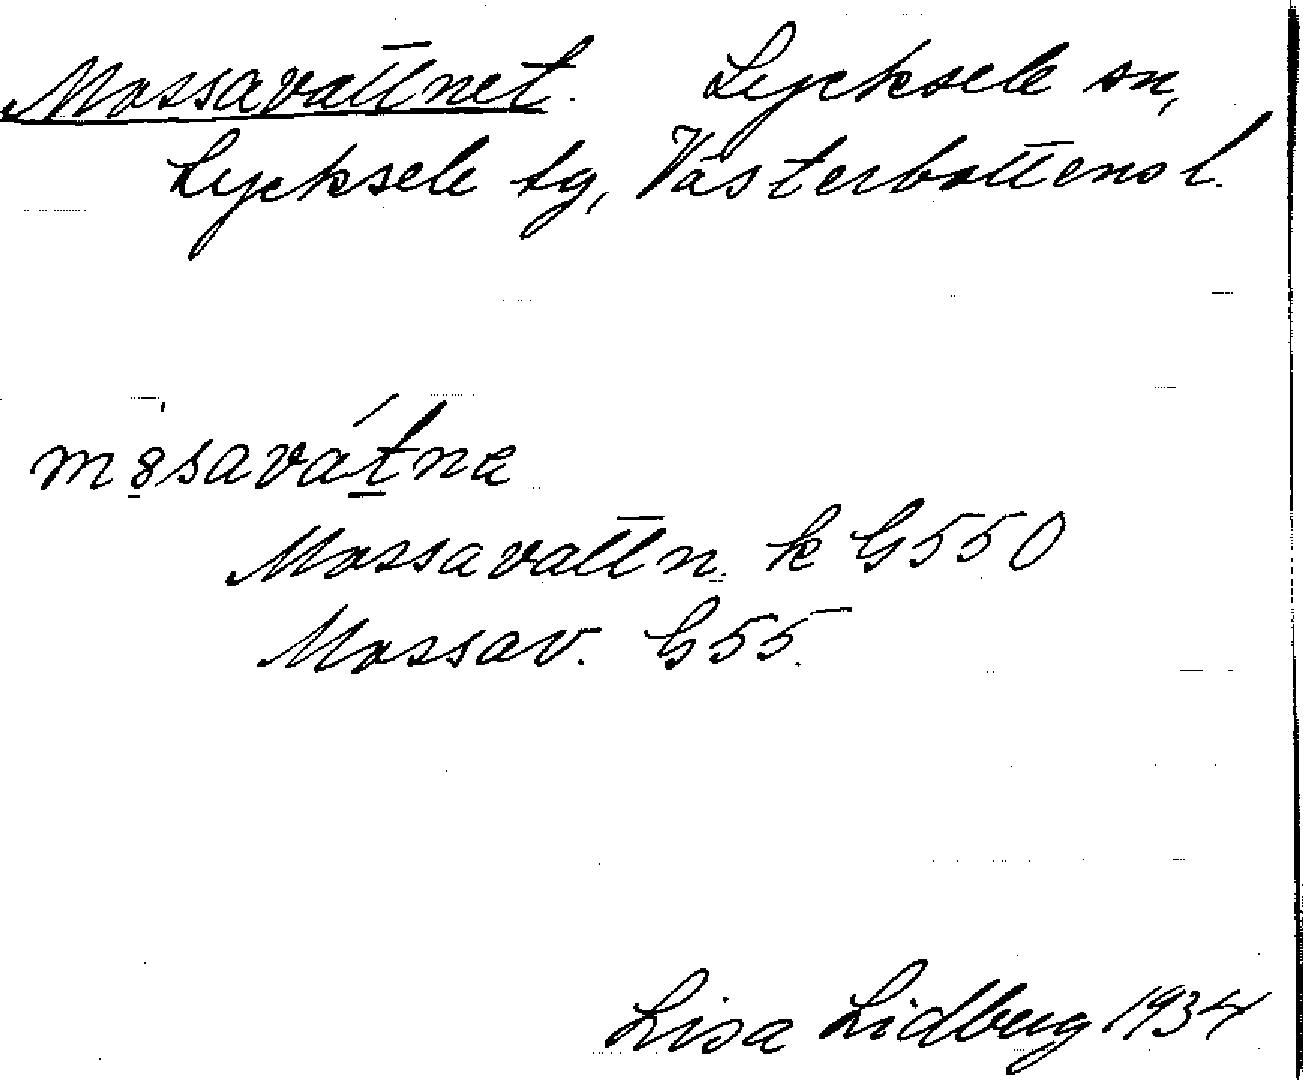 Mossavattnet. Lycksele sn,
Lycksele tg, Västerbottens l.
mo̱savát̲nɐ
Mossavattn. k G550
Mossav. G55.
Lisa Lidberg 1934